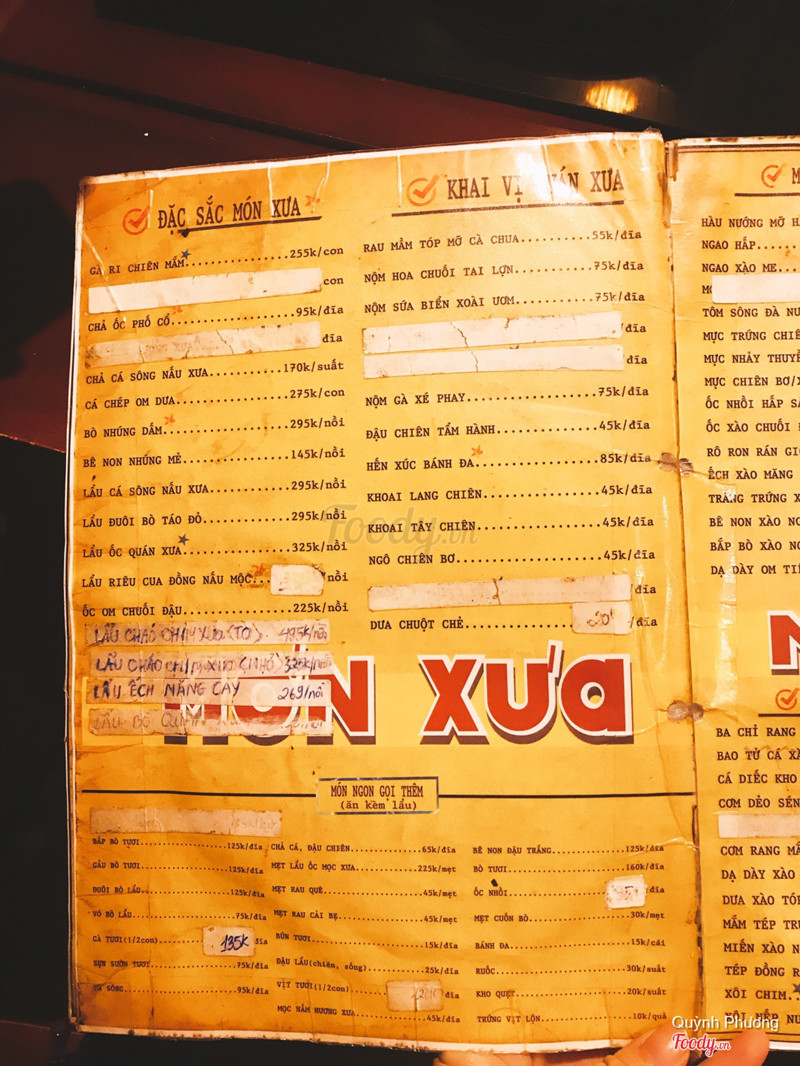 ĐẶC SẮC MÓN XƯA
GÀ RI CHIÊN MẮM 255k/con
con
CHẢ ỐC PHỐ CỔ 95k/đĩa
đĩa
CHẢ CÁ SÔNG NẤU XƯA 170k/suất
CÁ CHÉP OM DƯA 275k/con
BÒ NHÚNG DẤM 295k/nồi
BÊ NON NHÚNG MẺ 145k/nồi
LẨU CÁ SÔNG NẤU XƯA 295k/nồi
LẨU ĐUÔI BÒ TÁO ĐỎ 295k/nồi
LẨU ỐC QUÁN XƯA 325k/nồi
LẨU RIÊU CUA ĐỒNG NẤU MỘC /nồi
ỐC OM CHUỐI ĐẬU 225k/nồi
LẨU CHÁO CHIM XƯA (TO) 495k/nồi
LẨU CHÁO CHIM XƯA (NHỎ) 325k/nồi
LẨU ẾCH MĂNG CAY 269/nồi
LẨU BÒ
KHAI VỊ QUÁN XƯA
RAU MẦM TÓP MỠ CÀ CHUA 55k/đĩa
NỘM HOA CHUỐI TAI LỢN 75k/đĩa
NỘM SỨA BIỂN XOÀI ƯƠM 75k/đĩa
/đĩa
đĩa
NỘM GÀ XÉ PHAY 75k/đĩa
ĐẬU CHIÊN TẨM HÀNH 45k/đĩa
HẾN XÚC BÁNH ĐA 85k/đĩa
KHOAI LANG CHIÊN 45k/đĩa
KHOAI TÂY CHIÊN 45k/đĩa
NGÔ CHIÊN BƠ 45k/đĩa
/đĩa
DƯA CHUỘT CHẺ /đĩa
MÓN XƯA
MÓN NGON GỌI THÊM
(ăn kèm lẩu)
BẮP BÒ TƯƠI 125k/đĩa
GẦU BÒ TƯƠI 125k/đĩa
ĐUÔI BÒ LẨU 125k/đĩa
VÓ BÒ LẨU 75k/đĩa
GÀ TƯƠI(1/2con) 135K đĩa
SỤN SƯỜN TƯƠI 75k/đĩa
CÁ SÔNG 95k/đĩa
CHẢ CÁ, ĐẬU CHIÊN 65k/đĩa
MẸT LẨU ỐC MỌC XƯA 225k/mẹt
MẸT RAU QUÊ 45k/mẹt
MẸT RAU CẢI BẸ 45k/mẹt
BÚN TƯƠI 15k/đĩa
ĐẬU LẨU(chiên, sống) 25k/đĩa
VỊT TƯƠI(1/2con) đĩa
MỌC NẤM HƯƠNG XƯA 45k/đĩa
BÊ NON ĐẬU TRẮNG 125k/đĩa
BÒ TƯƠI 160k/đĩa
ỐC NHỒI đĩa
MẸT CUỐN BÒ 30k/mẹt
BÁNH ĐA 15k/cái
RUỐC 30k/suất
KHO QUẸT 20k/suất
TRỨNG VỊT LỘN 10k/quả
M
HÀU NƯỚNG MỠ H
NGAO HẤP
NGAO XÀO ME
TÔM SÔNG ĐÀ NƯ
MỰC TRỨNG CHIÊ
MỰC NHẢY THUYỀ
MỰC CHIÊN BƠ/
ỐC NHỒI HẤP SẢ
ỐC XÀO CHUỐI Đ
RÔ RON RÁN GI
ẾCH XÀO MĂNG
TRÀNG TRỨNG X
BÊ NON XÀO NG
BẮP BÒ XÀO NG
DẠ DÀY OM TI
BA CHỈ RANG
BAO TỬ CÁ XÀ
CÁ DIẾC KHO
CƠM DẺO SÉN
CƠM RANG MẮ
DẠ DÀY XÀO
DƯA XÀO TÓP
MẮM TÉP TRƯ
MIẾN XÀO N
TÉP ĐỒNG R
XÔI CHIM
XÔI NẾP NƯ
Foody.vn
Quỳnh Phương
Foody.vn